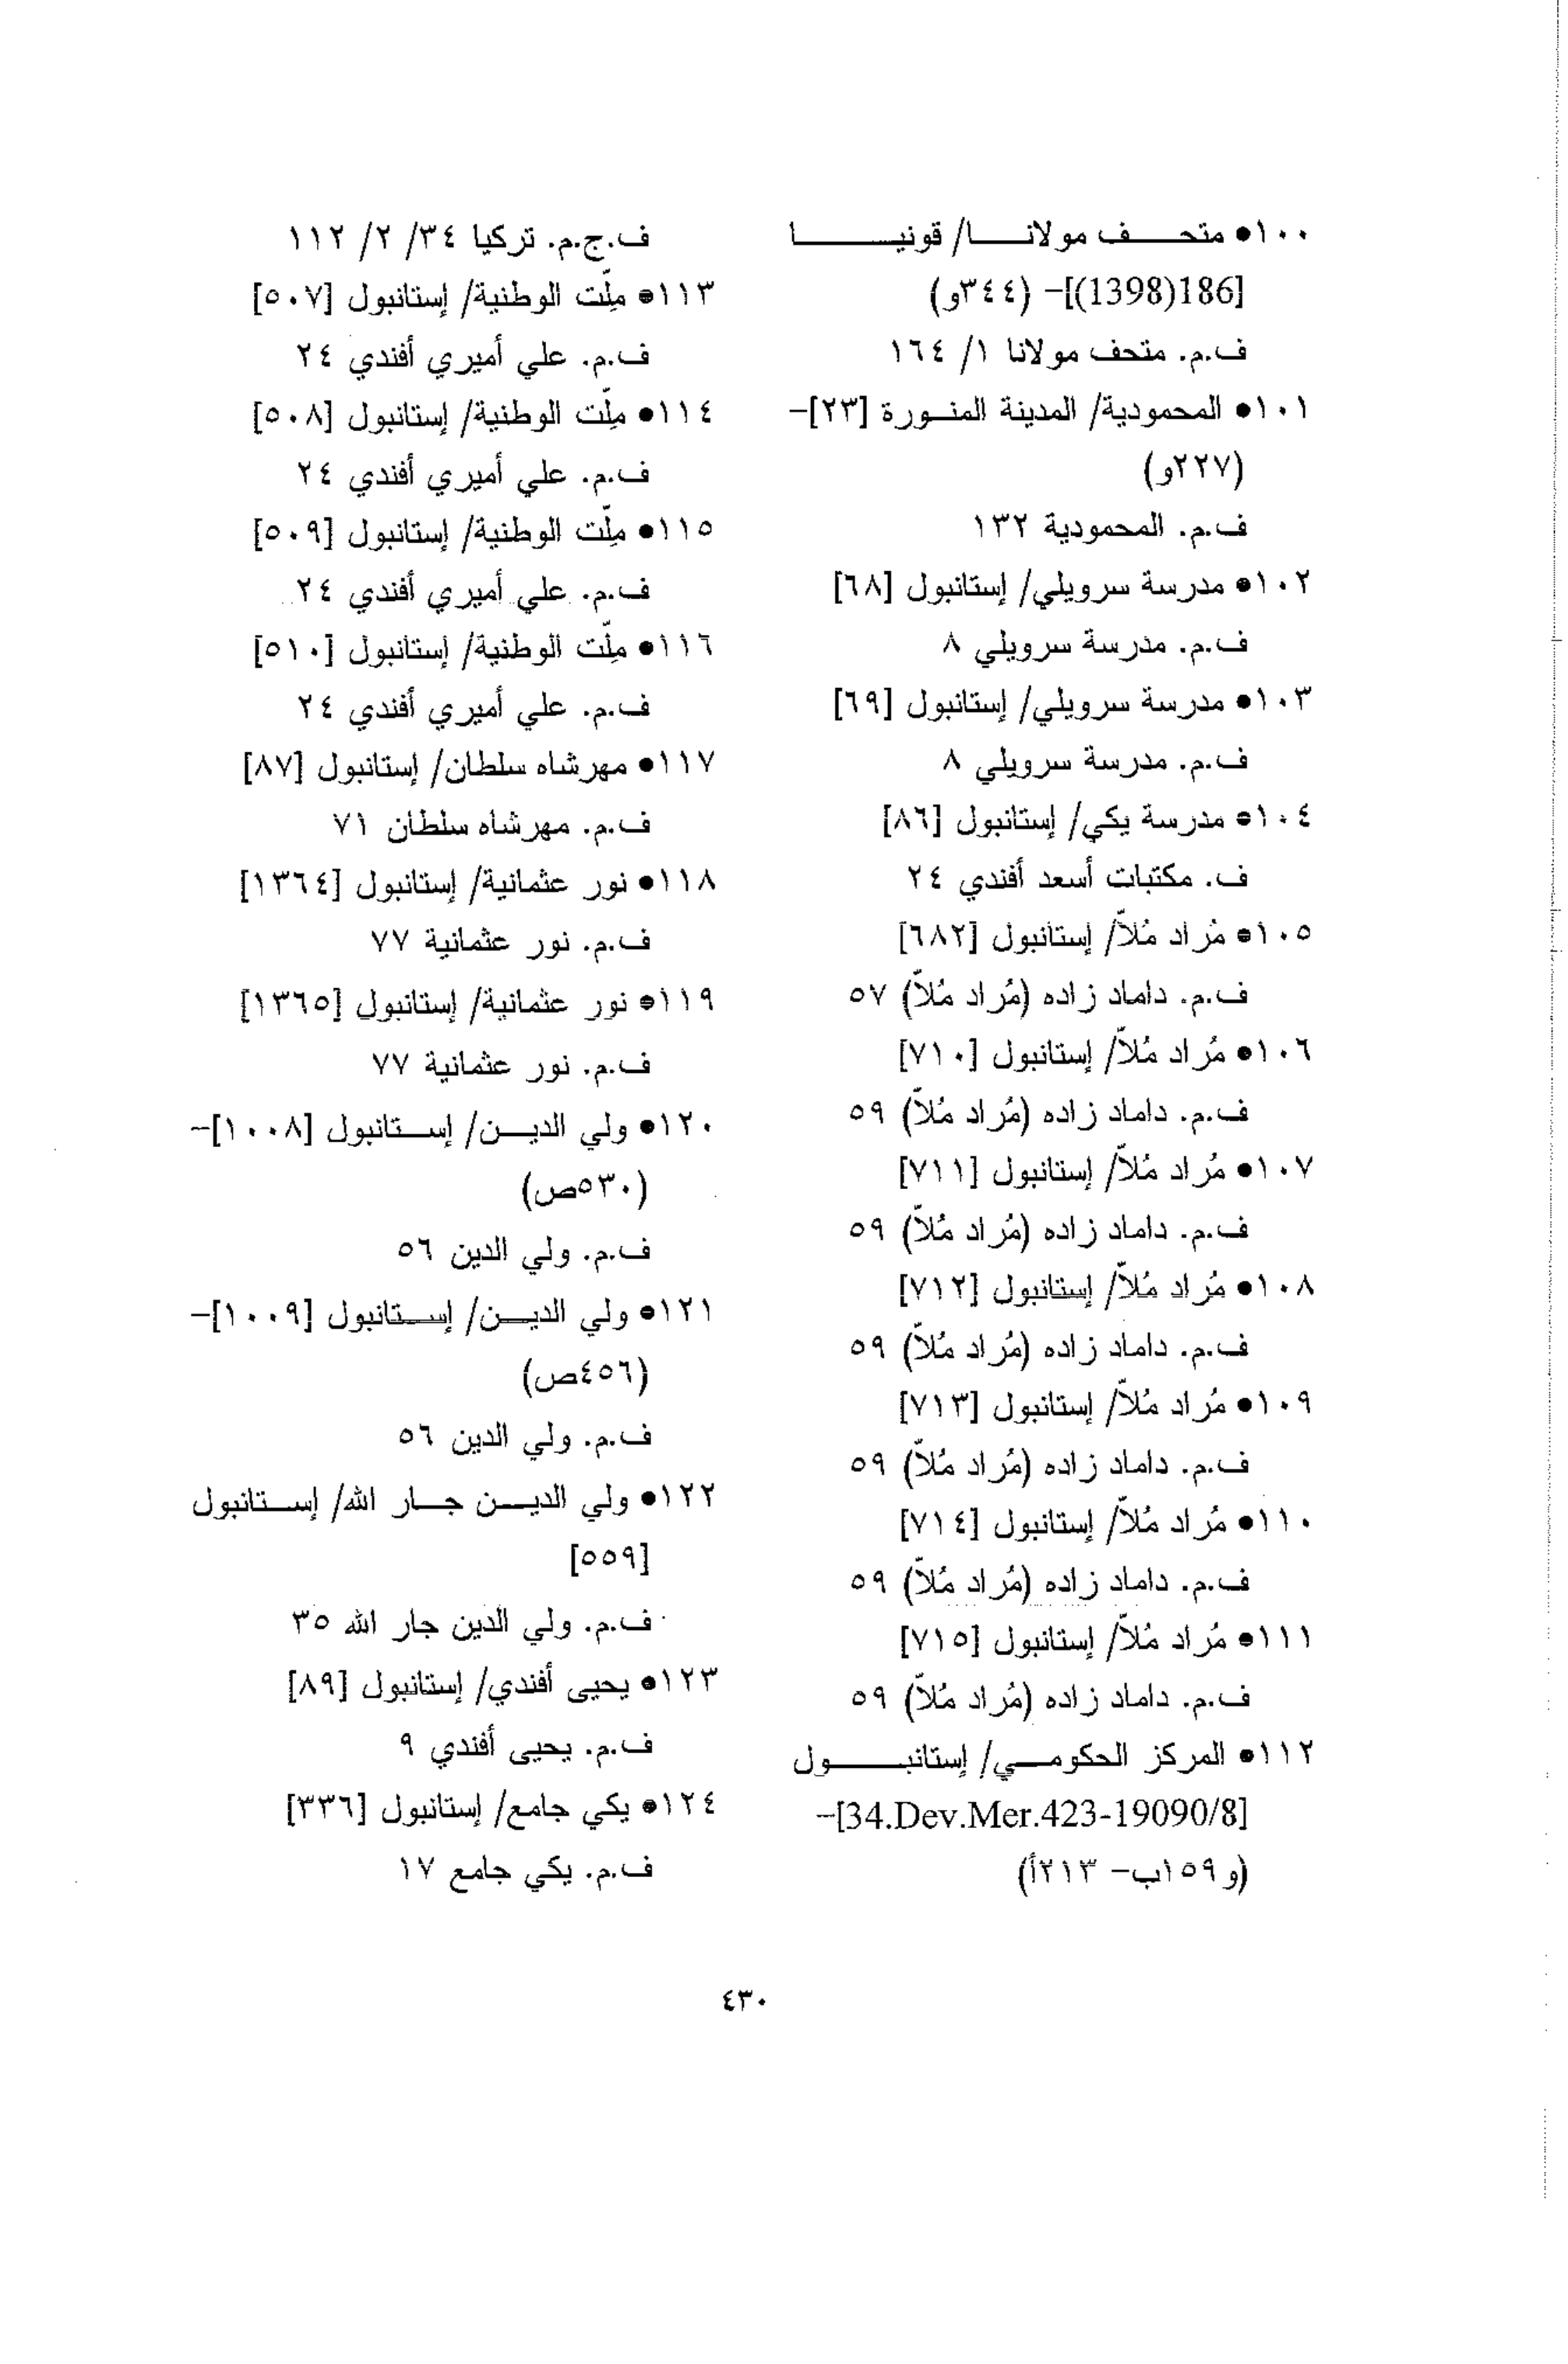 ١٠٠● متحف مولانا/ قونيا
[186(1398)]- (٣٤٤و)
ف.م. متحف مولانا ١/ ١٦٤
١٠١● المحمودية/ المدينة المنورة [٢٣]-
(٢٢٧و)
ف.م. المحمودية ١٣٢
١٠٢● مدرسة سرويلي/ إستانبول [٦٨]
ف.م. مدرسة سرويلي ٨
١٠٣● مدرسة سرويلي/ إستانبول [٦٩]
ف.م. مدرسة سرويلي ٨
١٠٤● مدرسة يكي/ إستانبول [٨٦]
ف. مكتبات أسعد أفندي ٢٤
١٠٥● مُراد مُلاّ/ إستانبول [٦٨٢]
ف.م. داماد زاده (مُراد مُلاّ) ٥٧
١٠٦● مُراد مُلاّ/ إستانبول [٧١٠]
ف.م. داماد زاده (مُراد مُلاّ) ٥٩
١٠٧● مُراد مُلاّ/ إستانبول [٧١١]
ف.م. داماد زاده (مُراد مُلاّ) ٥٩
١٠٨● مُراد مُلاّ/ إستانبول [٧١٢]
ف.م. داماد زاده (مُراد مُلاّ) ٥٩
١٠٩● مُراد مُلاّ/ إستانبول [٧١٣]
ف.م. داماد زاده (مُراد مُلاّ) ٥٩
١١٠● مُراد مُلاّ/ إستانبول [٧١٤]
ف.م. داماد زاده (مُراد مُلاّ) ٥٩
١١١● مُراد مُلاّ/ إستانبول [٧١٥]
ف.م. داماد زاده (مُراد مُلاّ) ٥٩
١١٢● المركز الحكومي/ إستانبول
[34.Dev.Mer.423-19090/8]-
(و ١٥٩ب- ٢١٣أ)
ف.ج.م. تركيا ٣٤/ ٢/ ١١٢
١١٣● ملِّت الوطنية/ إستانبول [٥٠٧]
ف.م. علي أميري أفندي ٢٤
١١٤● ملِّت الوطنية/ إستانبول [٥٠٨]
ف.م. علي أميري أفندي ٢٤
١١٥● ملِّت الوطنية/ إستانبول [٥٠٩]
ف.م. علي أميري أفندي ٢٤
١١٦● ملِّت الوطنية/ إستانبول [٥١٠]
ف.م. علي أميري أفندي ٢٤
١١٧● مهرشاه سلطان/ إستانبول [٨٧]
ف.م. مهرشاه سلطان ٧١
١١٨● نور عثمانية/ إستانبول [١٣٦٤]
ف.م. نور عثمانية ٧٧
١١٩● نور عثمانية/ إستانبول [١٣٦٥]
ف.م. نور عثمانية ٧٧
١٢٠● ولي الدين/ إستانبول [١٠٠٨]-
(٥٣٠ص)
ف.م. ولي الدين ٥٦
١٢١● ولي الدين/ إستانبول [١٠٠٩]-
(٤٥٦ص)
ف.م. ولي الدين ٥٦
١٢٢● ولي الدين جار الله/ إستانبول
[٥٥٩]
ف.م. ولي الدين جار الله ٣٥
١٢٣● يحيى أفندي/ إستانبول [٨٩]
ف.م. يحيى أفندي ٩
١٢٤● يكي جامع/ إستانبول [٣٣٦]
ف.م. يكي جامع ١٧
٤٣٠